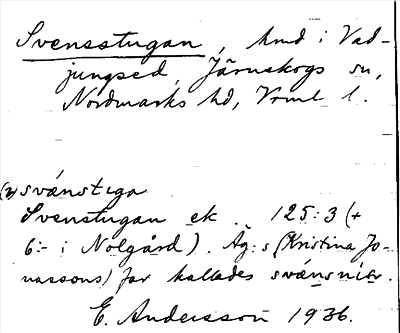 Svensstugan, hmd i Vad-
jungsed, Järnskogs sn,
Nordmarks hd, Vrml l.
(2) svänstega
Svenstugan ek. 125:3 (+
6:- i Nolgård). Äg:s (Kristina Jo-
nassons) far kallades svänsnier.
E. Andersson 1936.